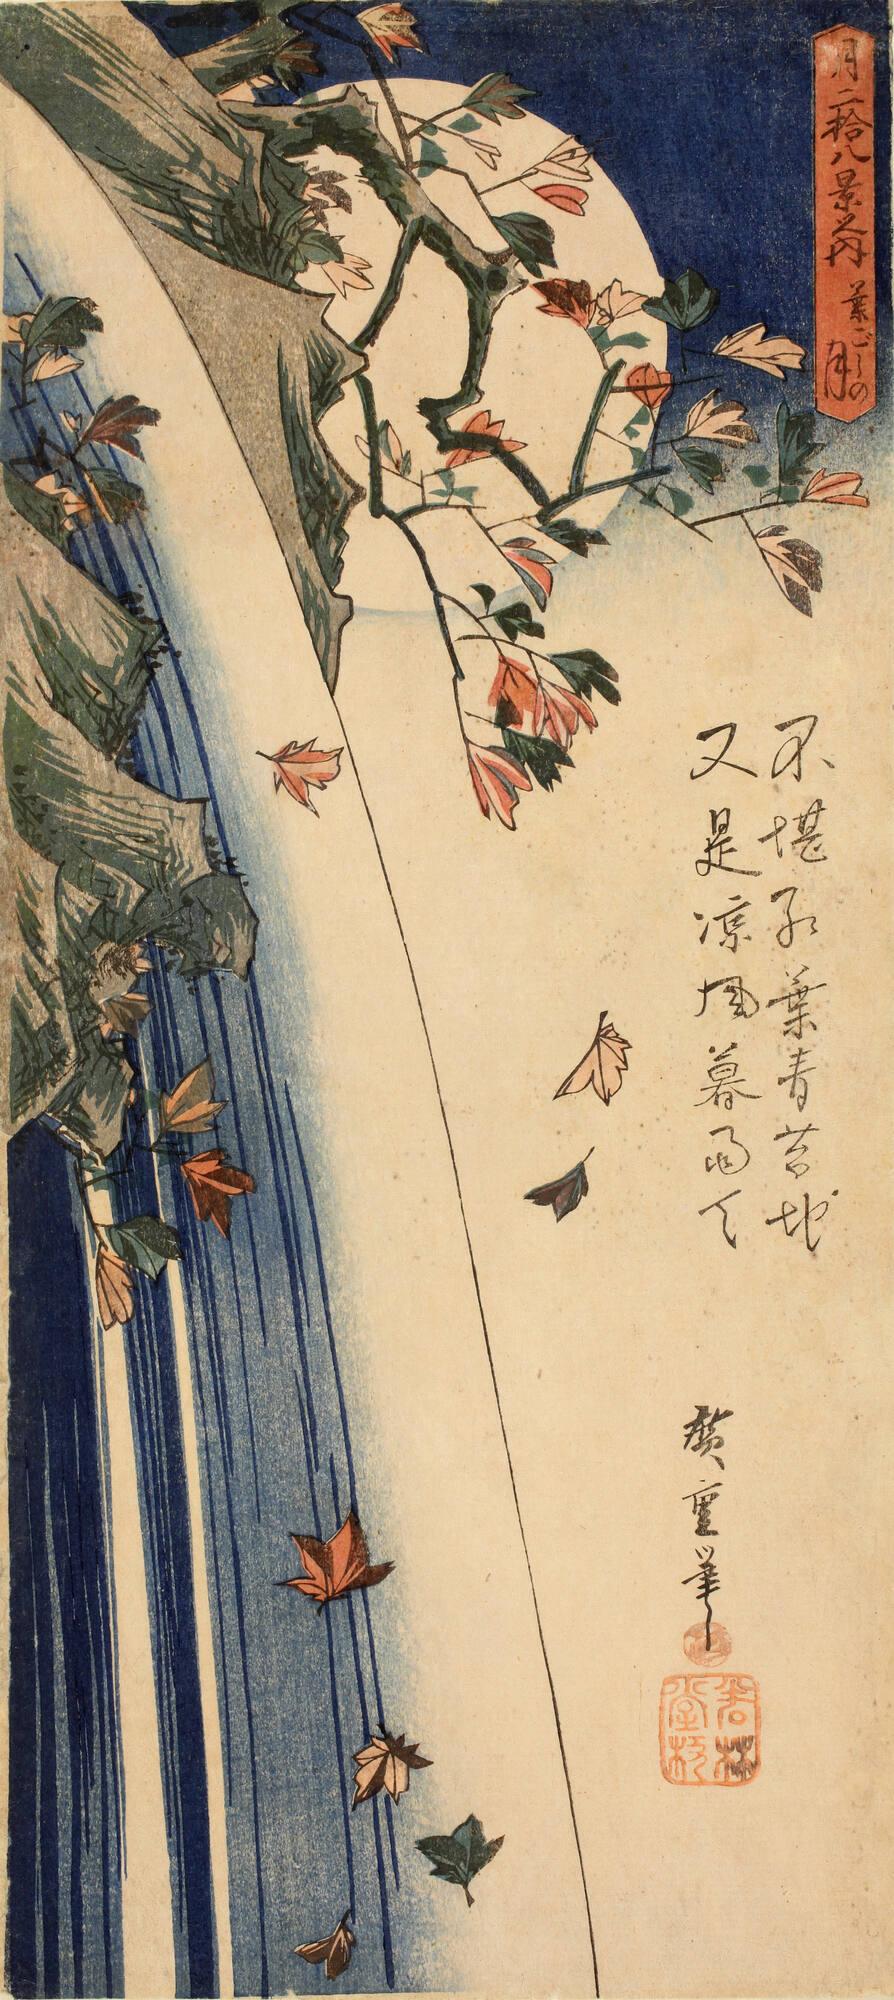 月二拾八景之内 葉ごしの月
不堪紅葉青苔地
又是凉風暮雨天
廣重筆
若林堂梓